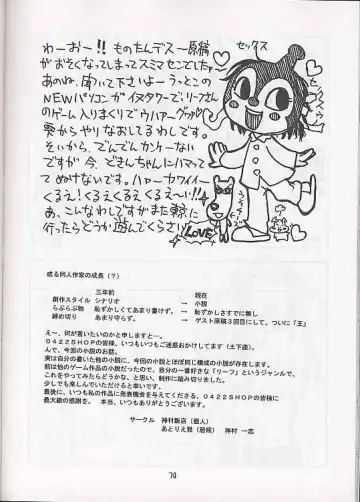 わーおー!! ものたんデスー原稿
がおそくなってしまってスミマセンでしたァ
あのね、聞いて下さいよーうっとこの
NEWパソコンがイヌタワーでリーフさん
のゲーム入りまくりでウハァーグゥァル
雫からやりなおしてるわしです。
そいから、でんでんカンケーない
ですが今、どきんちゃんにハマって
てぬけないです。ハァーカワイイー
くるえ!くるえくるえくるえーい!!
あ、こんなわしですがまた東京に
行ったらどうか遊んでくらさい
セックス
LOVE
或る同人作家の成長(?)
三年前 現在
創作スタイル シナリオ → 小説
らぶらぶ物 恥ずかしくてあまり書けず。 → 恥ずかしさすでに無し
締め切り あまり守らず。 → ゲスト原稿3回目にして、ついに「王」
え~、何が言いたいのかと申しますと…。
0422SHOPの皆様、いつもいつもご迷惑おかけしてます(土下座)。
んで、今回の小説のお話。
実は自分の書いた他の小説に、今回の小説とほぼ同じ構成の小説が存在します。
前は他のゲーム作品の小説だったので、自分の一番好きな「リーフ」というジャンルで、
これをやってみたらどうかな、と思い、制作に踏み切りました。
少しでも楽しんでいただけると幸いです。
最後に、いつも私の作品に発表機会を与えてくださる、0422SHOPの皆様に
最大級の感謝を。 本当、いつもありがとうございます。
サークル 神村飯店(個人)
あとりえ雅(居候) 神村 一志
74